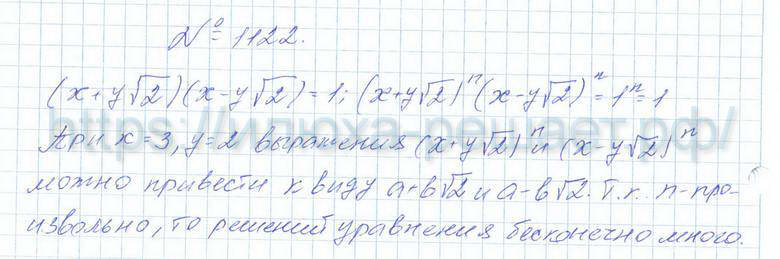 № 1122.
(x+y√2)(x-y√2)=1; (x+y√2)ⁿ(x-y√2)ⁿ=1ⁿ=1
При x=3, y=2 выражения (x+y√2)ⁿ и (x-y√2)ⁿ
можно привести к виду a+b√2 и a-b√2. Т.к. n-про-
извольно, то решений уравнения бесконечно много.